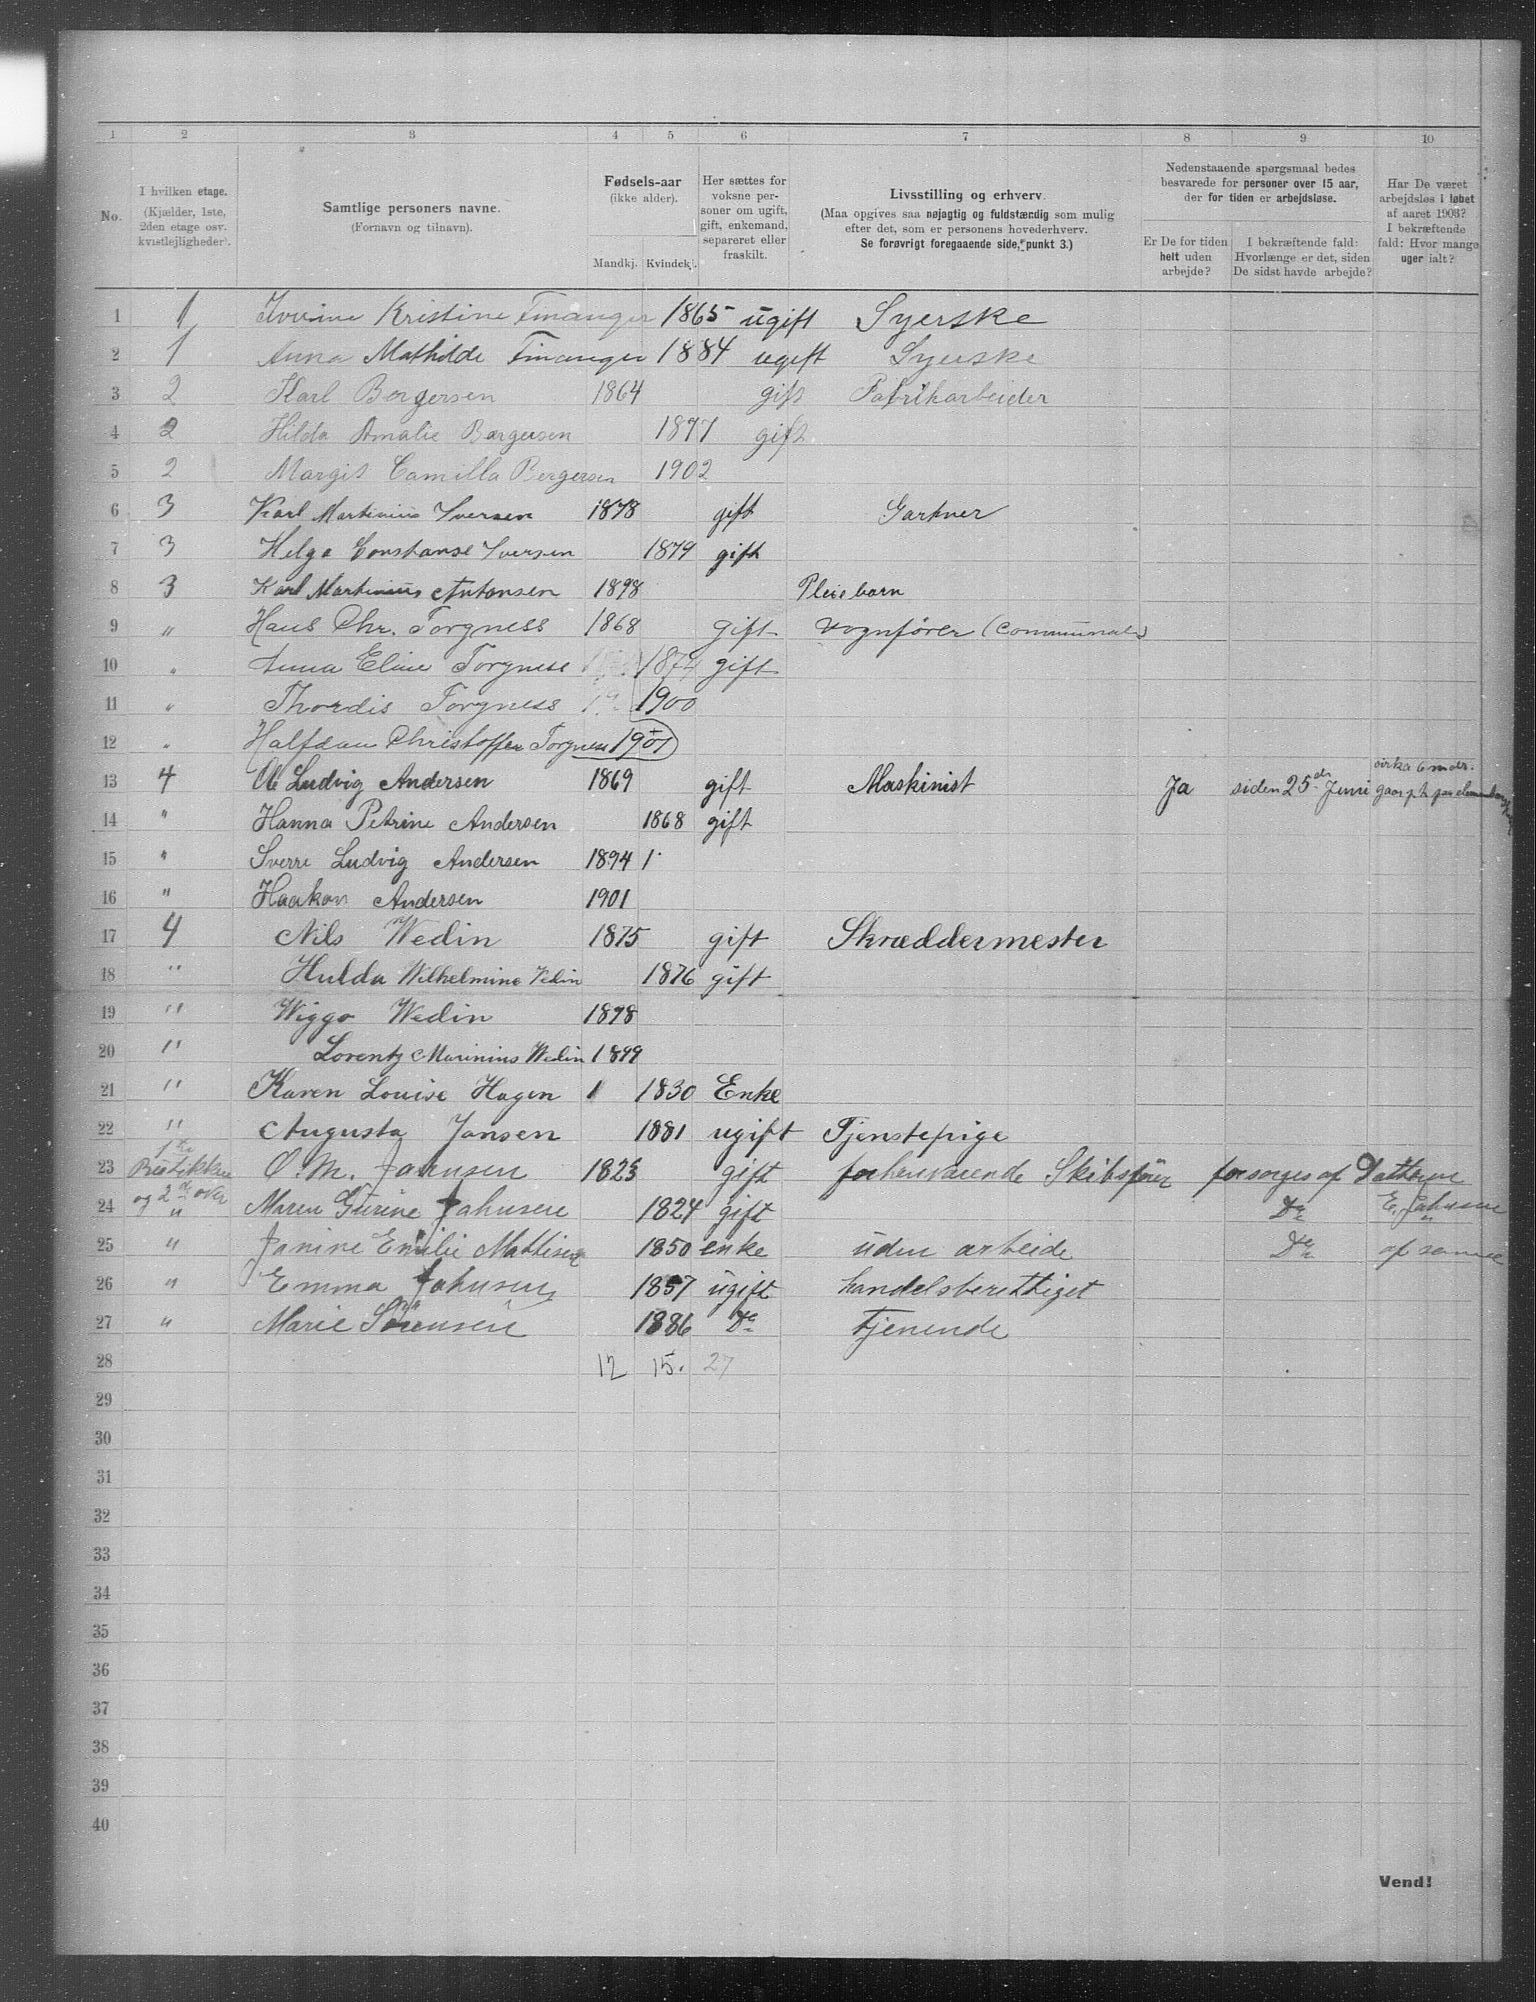 1 2 3 4 5 6 7 8 9 10
No.
I hvilken etage.
(Kjælder, 1ste,
2den etage osv.
kvistlejligheder).
Samtlige personers navne.
(Fornavn og tilnavn).
Fødsels-aar
(ikke alder).
Mandkj. Kvindekj.
Her sættes for
voksne per-
soner om ugift,
gift, enkemand,
separeret eller
fraskilt.
Livsstilling og erhverv.
(Maa opgives saa nøjagtig og fuldstændig som mulig
efter det, som er personens hovederhverv.
Se forøvrigt foregaaende side, punkt 3.)
Nedenstaaende spørgsmaal bedes
besvarede for personer over 15 aar,
der for tiden er arbejdsløse.
Er De for tiden
helt uden
arbejde?
I bekræftende fald:
Hvorlænge er det, siden
De sidst havde arbejde?
Har De været
arbejdsløs i løbet
af aaret 1903?
I bekræftende
fald: Hvor mange
uger ialt?
1 1 Kristine Finanger 1865 ugift Syerske
2 1 Anna Mathilde Finanger 1884 ugift Syerske
3 2 Karl Bergersen 1864 gift Fabrikarbeider
4 2 Hilda Amalie Bergersen 1877 gift
5 2 Margit Camilla Bergersen 1902
6 3 Karl Martinius Iversen 1878 gift Gartner
7 3 Helga Constanse Iversen 1879 gift
8 3 Karl Martinius Antonsen 1898 Pleiebarn
9 " Hans Chr. Torgness 1868 gift vognfører (Communal)
10 " Anna Eline Torgness 1874 gift
11 " Thordis Torgness 1900
12 " Halfdan Christoffer Torgness 1901
13 4 Ole Ludvig Andersen 1869 gift Maskinist Ja siden 25de Juni cirka 6 mdr.
14 " Hanna Petrine Andersen 1868 gift
15 " Sverre Ludvig Andersen 1894 1
16 " Haakon Andersen 1901
17 4 Nils Wedin 1875 gift Skræddermester
18 " Hulda Wilhelmine Vedin 1876 gift
19 " Wiggo Wedin 1898
20 " Lorentz Marinius Wedin 1899
21 " Karen Louise Hagen 1 1830 Enke
22 " Augusta Jansen 1881 ugift Tjenstepige
23 1ste O. M. Jahnsen 1823 gift forhenværende Skibsfører forsørges af Datteren
24 og 2den over " Maren Gurine Jahnsen 1824 gift Do E. Jahnsen
25 " Janine Emilie Mattisen 1850 enke uden arbeide Do af samme
26 " Emma Jahnsen 1857 ugift handelsberettiget
27 " Marie Sørensen 1886 Do Tjenende
28 12 15. 27
29
30
31
32
33
34
35
36
37
38
39
40
Vend!